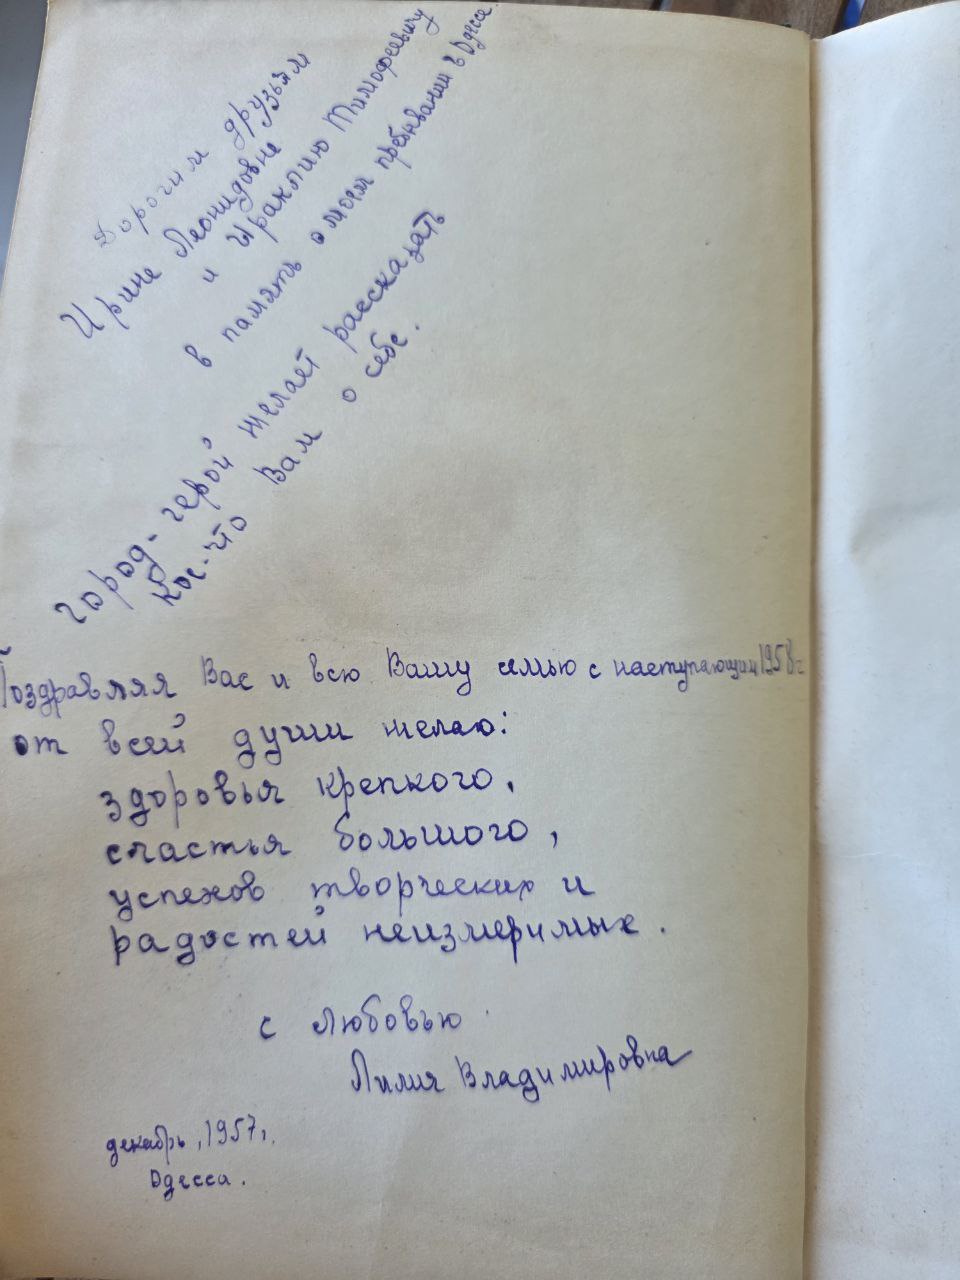 Дорогим друзьям
Ирине Леонидовне
и Ираклию Тимофеевичу
в память о моем пребывании в Одессе.
город-герой желает рассказать
Кое-что Вам о себе.
Поздравляя Вас и всю Вашу семью с наступающим 1958 г
от всей души желаю:
здоровья крепкого,
счастья большого,
успехов творческих и
радостей неизмеримых.
с любовью
Лилия Владимировна
декабрь, 1957г.
Одесса.